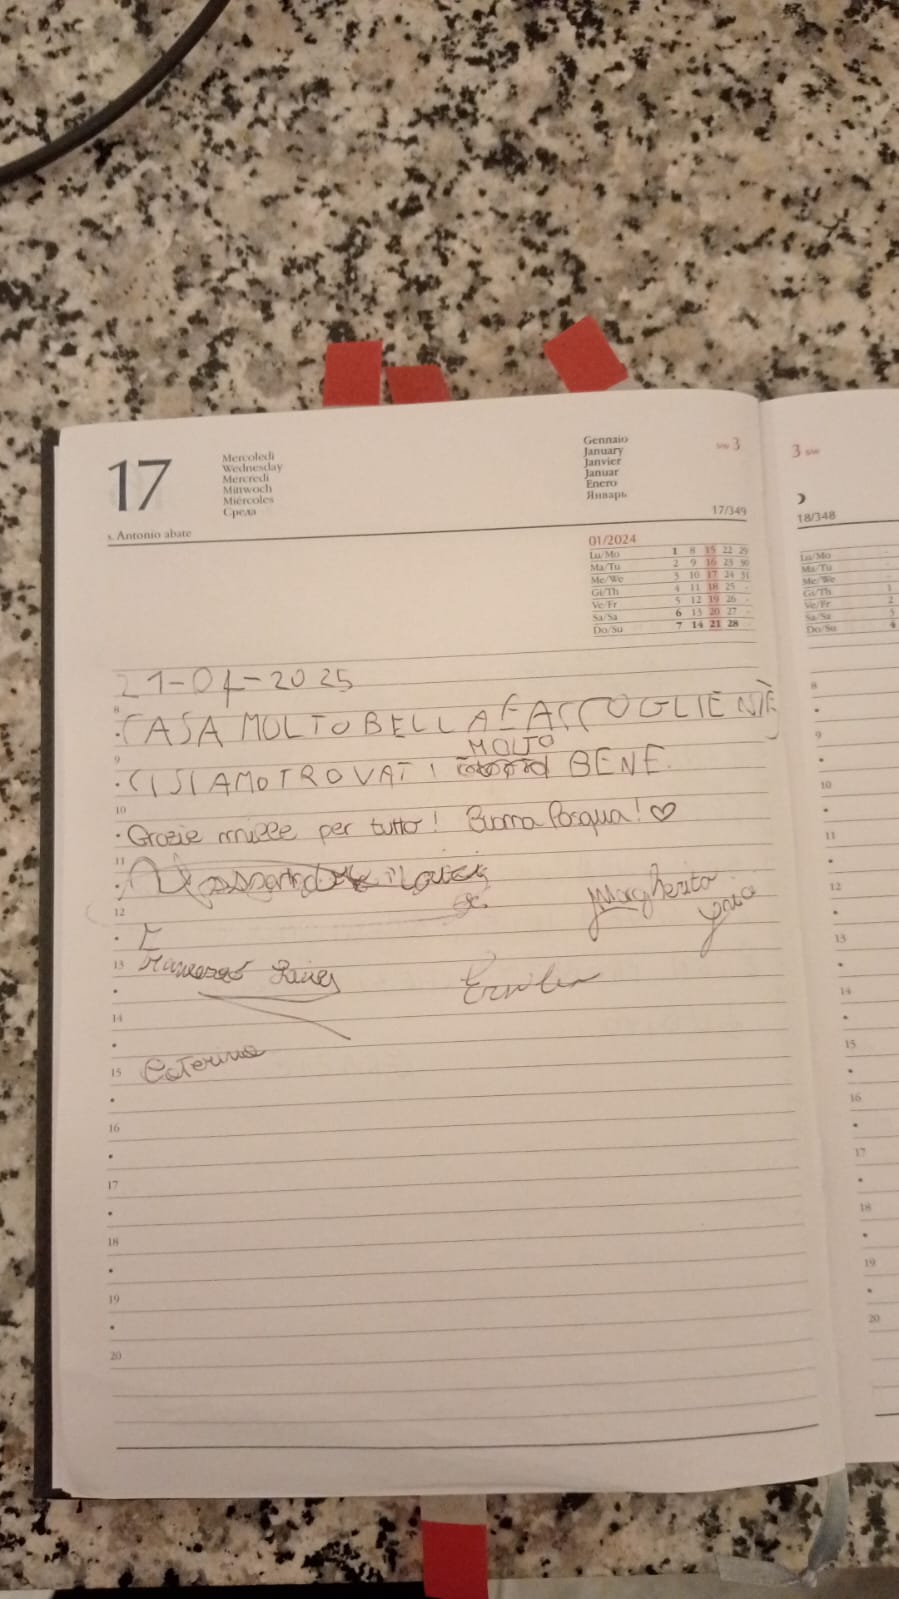 17
Mercoledì
Wednesday
Mercredi
Mittwoch
Miércoles
Среда
s. Antonio abate
Gennaio
January
Janvier
Januar
Enero
Январь
3
17/349
01/2024
Lu/Mo 1 8 15 22 29
Ma/Tu 2 9 16 23 30
Me/We 3 10 17 24 31
Gi/Th 4 11 18 25 -
Ve/Fr 5 12 19 26 -
Sa/Sa 6 13 20 27 -
Do/Su 7 14 21 28
21-04-2025
8
CASA MOLTO BELLA E ACCOGLIENTE
9
MOLTO
CI SIAMO TROVATI BENE
10
Grazie mille per tutto! Buona Pasqua! ♡
11
12
Margherita
13
Francesco
14
15 Caterina
16
17
18
19
20
3
18/348
Lu/Mo -
Ma/Tu -
Me/We -
Gi/Th 1
Ve/Fr 2
Sa/Sa 3
Do/Su 4
8
9
10
11
12
13
14
15
16
17
18
19
20